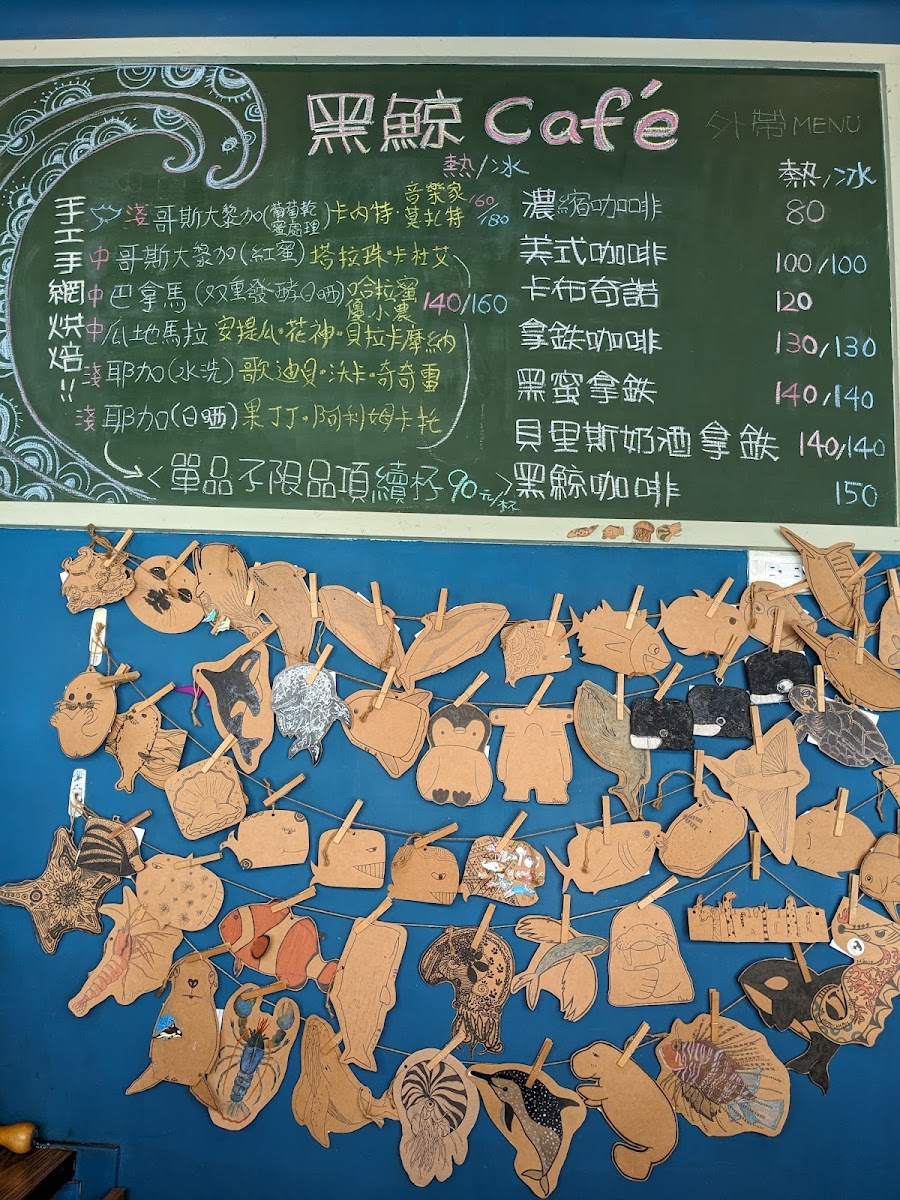 黑鯨 Café 外帶 MENU
熱/冰
手工手網烘焙!!
淺 哥斯大黎加(葡萄乾蜜處理) 卡內特·音樂家莫扎特 160/180
中 哥斯大黎加(紅蜜) 塔拉珠·卡杜艾
中 巴拿馬(双重發酵日晒) 哈拉蜜優小農 140/160
中 瓜地馬拉 安提瓜·花神·貝拉卡摩納
淺 耶加(水洗) 歌迪貝·沃卡·奇奇雷
淺 耶加(日晒) 果丁丁·阿利姆卡托
<單品不限品項續杯90元/杯>
熱/冰
濃縮咖啡 80
美式咖啡 100/100
卡布奇諾 120
拿鉄咖啡 130/130
黑蜜拿鉄 140/140
貝里斯奶酒拿鉄 140/140
黑鯨咖啡 150